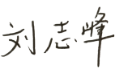 刘志峰